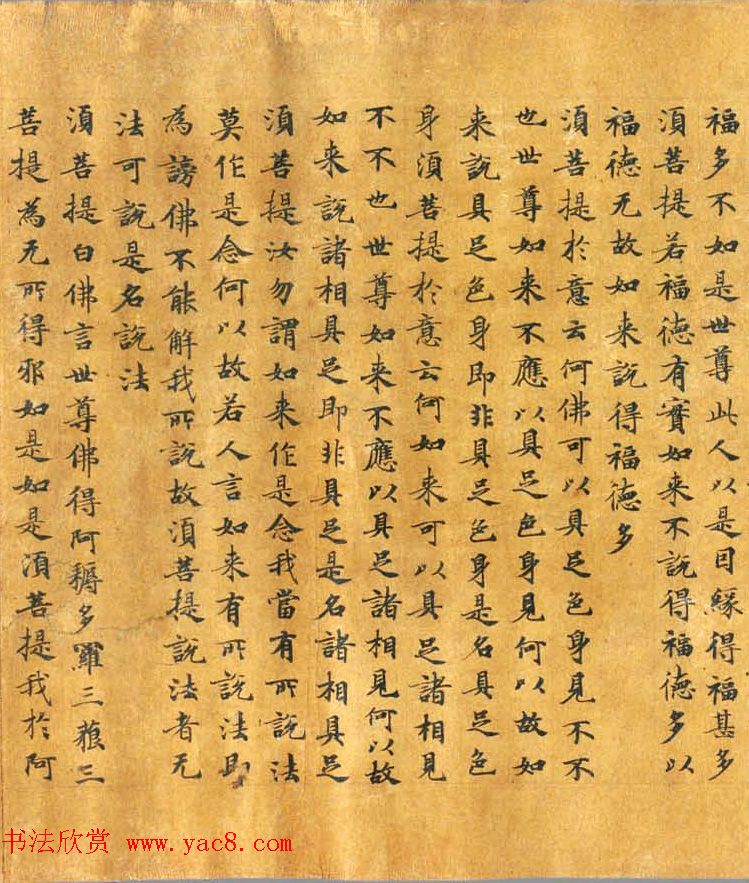 福多不如是世尊此人以是因緣得福甚多
須菩提若福德有實如来不説得福德多以
福德无故如来説得福德多
須菩提於意云何佛可以具足色身見不不
也世尊如来不應以具足色身見何以故如
来説具足色身即非具足色身是名具足色
身須菩提於意云何如来可以具足諸相見
不不也世尊如来不應以具足諸相見何以故
如来説諸相具足即非具足是名諸相具足
須菩提汝勿謂如来作是念我當有所説法
莫作是念何以故若人言如来有所説法即
為謗佛不能解我所説故須菩提説法者无
法可説是名説法
須菩提白佛言世尊佛得阿耨多羅三藐三
菩提為无所得邪如是如是須菩提我於阿
书法欣赏 www.yac8.com